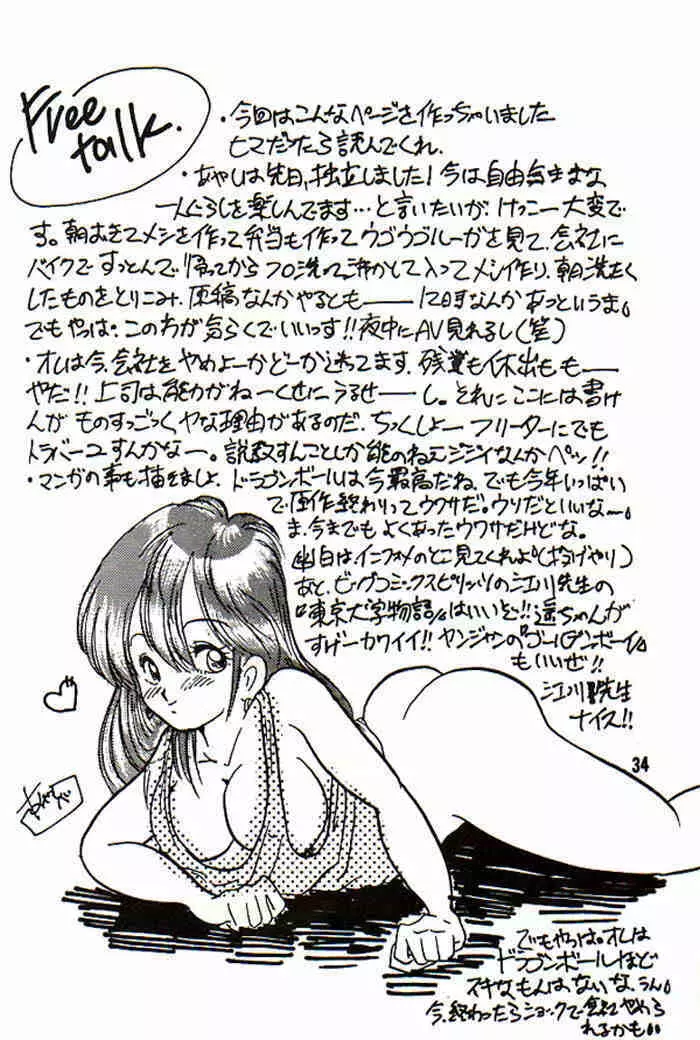 Free
talk.
・今回はこんなページを作っちゃいました
ヒマだったら読んでくれ.
・あやしは先日,独立しました!今は自由気ままな
一人ぐらしを楽しんでます…と言いたいが,けっこー大変で
す。朝おきてメシを作って弁当も作ってウゴウゴルーガを見て,会社に
バイクですっとんで帰ってからフロ洗って沸かして入ってメシ作り,朝洗たく
したものをとりこみ,原稿なんかやるとも――12時なんかあっというま。
でもやっぱ。この方が気らくでいいっす!!夜中にAV見れるし(笑)
・オレは今,会社をやめよーかどーか迷ってます.残業も休出もも――
やだ!!上司は能力がねーくせにうるせ――し。それにここには書け
んが ものすっごっくヤな理由があるのだ.ちっくしょー フリーターにでも
トラバーユすんかなー。説教すんことしか能のねェジジイなんかペッ!!
・マンガの事も描きましょ.ドラゴンボールは今最高だね.でも今年いっぱい
で原作終わりってウワサだ。ウソだといいな~。
ま,今までもよくあったウワサだけどな。
幽白はインフォメのとこ見てくれよ(投げやり)
あと,ビッグコミックスピリッツの江川先生の
『東京大学物語』はいいぞ!!遥ちゃんが
すげーカワイイ!!ヤンジャンの『ゴールデンボーイ』
もいいぜ!!
江川先生
ナイス!!
34
でもやっぱ。オレは
ドラゴンボールほど
スキなもんはないな,うん。
今,終わったらショックで会社やめら
れるかも